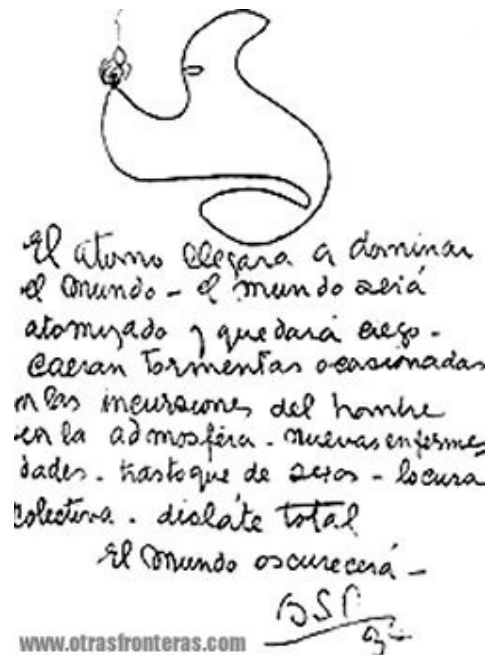 El atomo llegara a dominar
el mundo - el mundo será
atomizado y quedará ciego -
caeran tormentas ocasionadas
en las incursiones del hombre
en la admosféra - nuevas enferme
dades - trastoque de sexos - locura
colectiva - disláte total
El mundo oscurecerá -
BSP
www.otrasfronteras.com